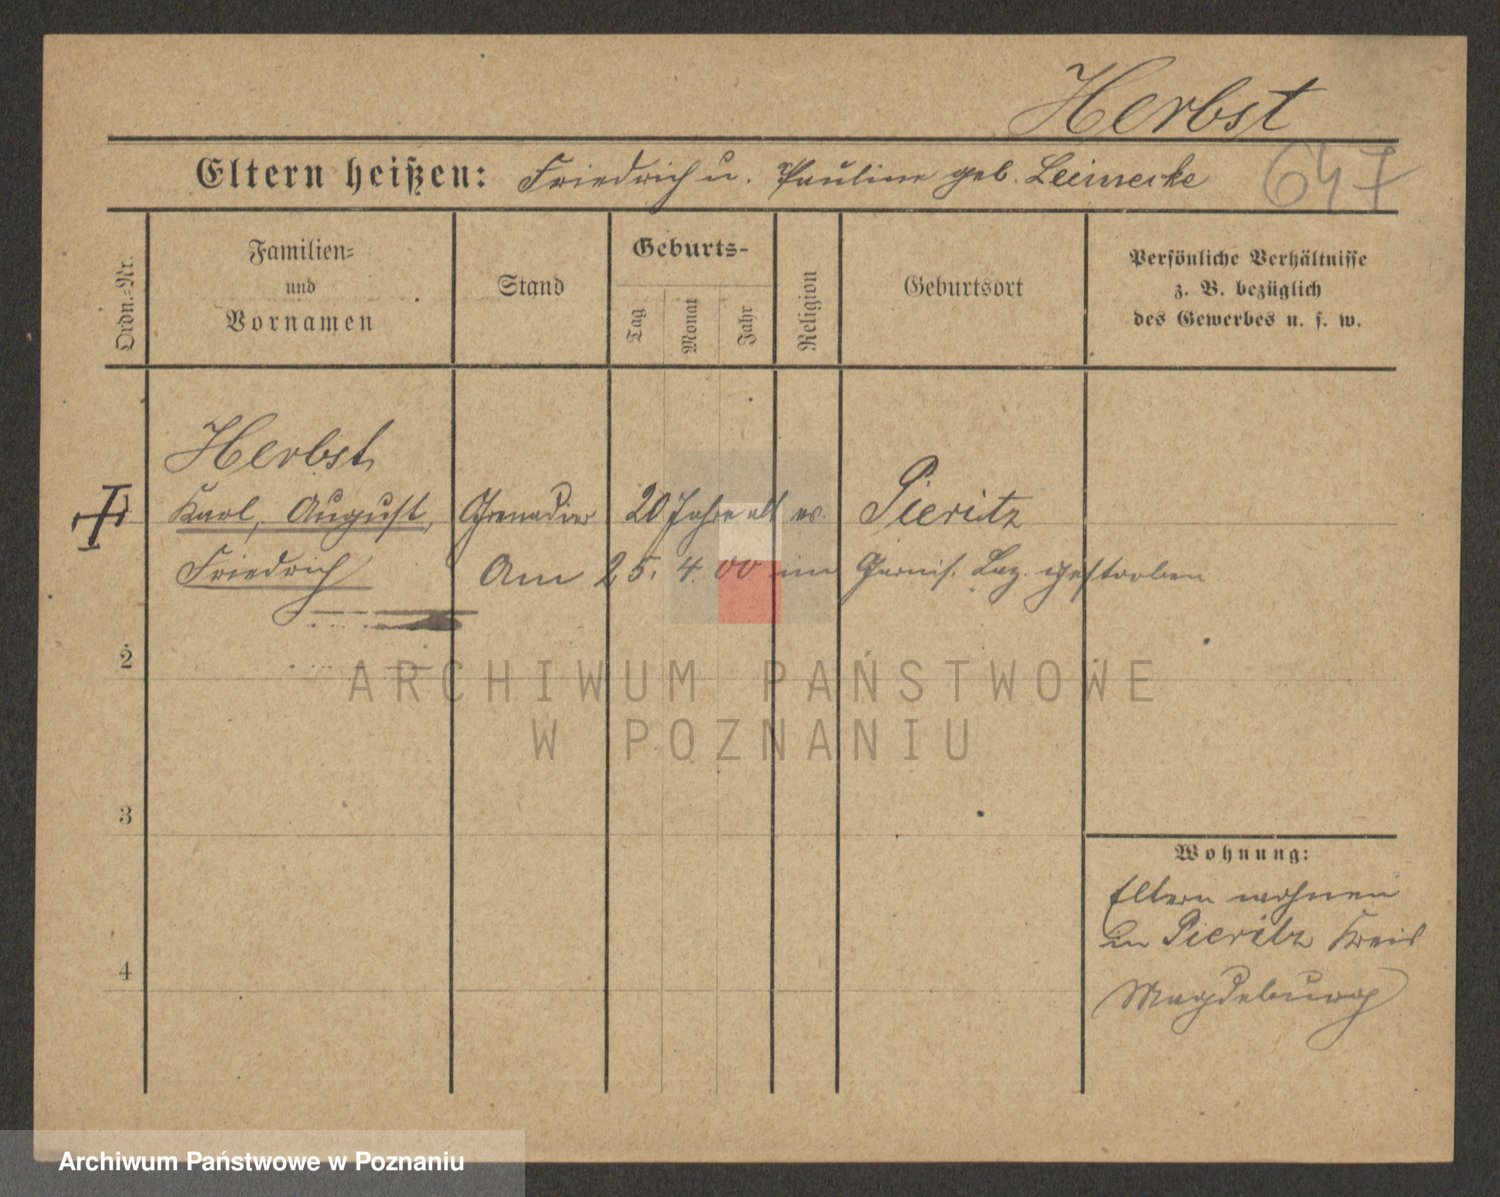 Herbst
Eltern heißen: Friedrich u. Pauline geb. Leinecke
647
Ordn.-Nr.
Familien-
und
Vornamen
Stand
Geburts-
Tag
Monat
Jahr
Religion
Geburtsort
Persönliche Verhältnisse
z. B. bezüglich
des Gewerbes u. s. w.
Herbst,
1 Karl, August, Grenadier 20 Jahre alt ev. Pieritz
Friedrich Am 25. 4. 00 im Garnis. Laz. gestorben
2
3
4
Wohnung:
Eltern wohnen
in Pieritz Kreis
Magdeburg
ARCHIWUM PAŃSTWOWE
W POZNANIU
Archiwum Państwowe w Poznaniu